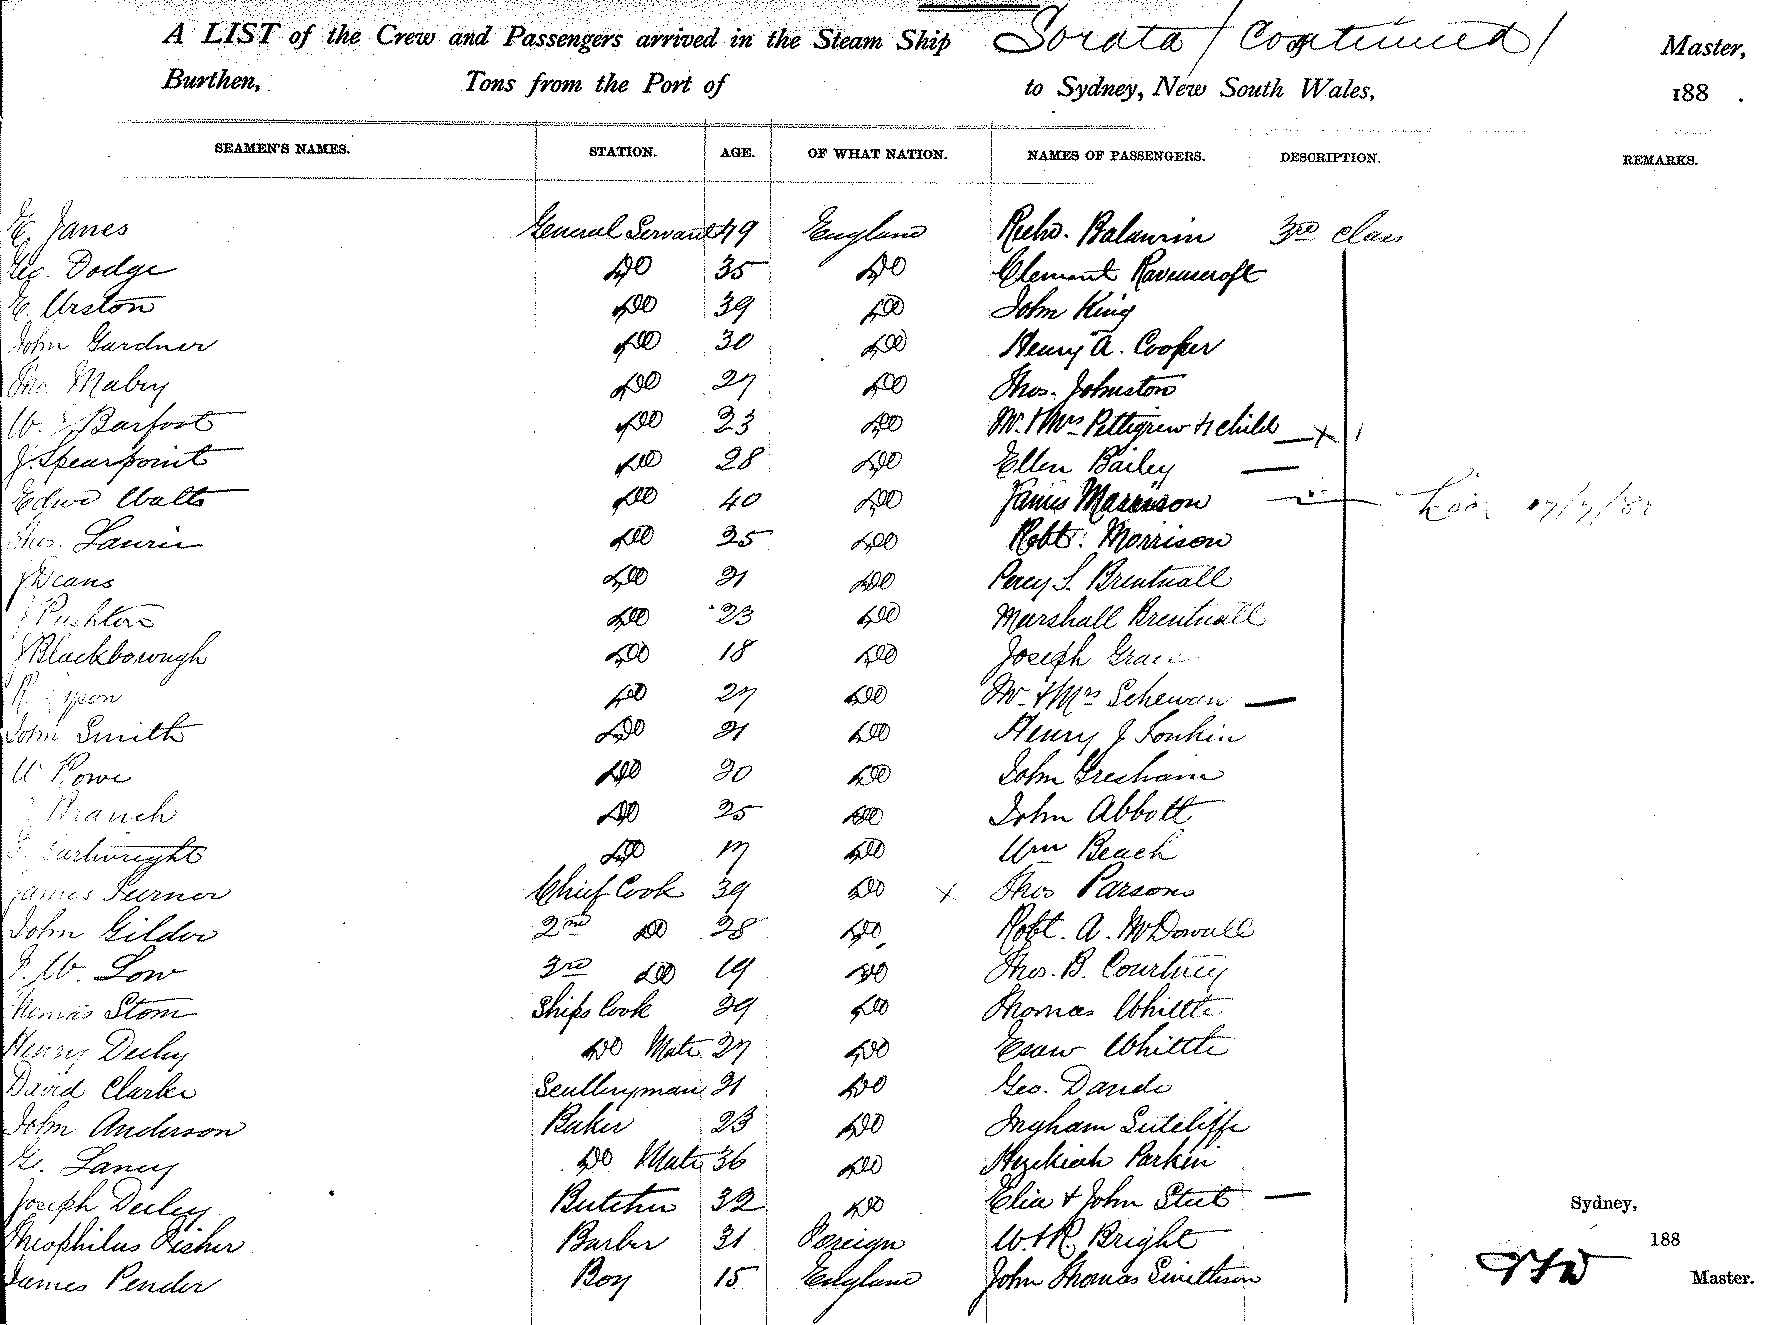 A LIST of the Crew and Passengers arrived in the Steam Ship Sorata (Continued) Master,
Burthen, Tons from the Port of to Sydney, New South Wales, 188 .
SEAMEN'S NAMES. STATION. AGE. OF WHAT NATION. NAMES OF PASSENGERS. DESCRIPTION. REMARKS.
E. Janes General Servant 49 England Richd. Baldwin 3rd class
Geo. Dodge Do 35 Do Clement Ravenscroft
E. Urston Do 39 Do John King
John Gardner Do 30 Do Henry A. Cooper
Thos. Mabey Do 27 Do Thos. Johnston
W. Barfoot Do 23 Do Mr. & Mrs Pettigrew & child
J. Spearpoint Do 28 Do Ellen Bailey
Edwd Watts Do 40 Do James Morrison
Thos. Laurie Do 25 Do Robt. Morrison
J Deans Do 21 Do Percy S. Brentnall
Do 23 Do Marshall Brentnall
J Blackborough Do 18 Do Joseph Grace
Do 27 Do Mr & Mrs Schewan
John Smith Do 21 Do Henry J Tonkin
W Rowe Do 30 Do John Gresham
Branch Do 25 Do John Abbott
Cartwright Do 17 Do Wm Beach
James Turner Chief Cook 39 Do x Thos Parsons
John Gilder 2nd Do 28 Do Robt. A. McDowall
W. Low 3rd Do 19 Do Thos. B. Courtney
Thomas Stom Ships Cook 39 Do Thomas Whittle
Henry Deeley Do Mate 27 Do Esaw Whittle
David Clarke Sculleryman 21 Do Geo. Dande
John Anderson Baker 23 Do Ingham Sutcliffe
G. Laney Do Mate 36 Do Hezekiah Parkin
Joseph Deeley Butcher 32 Do Eliza & John Steet
Sydney,
Theophilus Fisher Barber 31 Foreign W. & R. Bright
188
James Pender Boy 15 England John Thomas Smithson
Master.